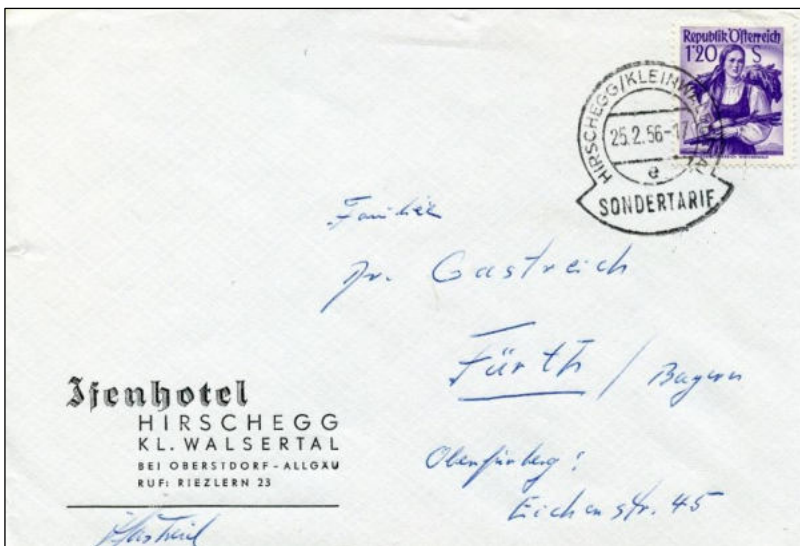 Republik Österreich
1'20 S
HIRSCHEGG/KLEINWALSERTAL
25.2.56-17
e
SONDERTARIF
Familie
Dr. Gastreich
Fürth / Bayern
Oberfürberg!
Eichenstr. 45
Ifenhotel
HIRSCHEGG
KL. WALSERTAL
BEI OBERSTDORF-ALLGÄU
RUF: RIEZLERN 23